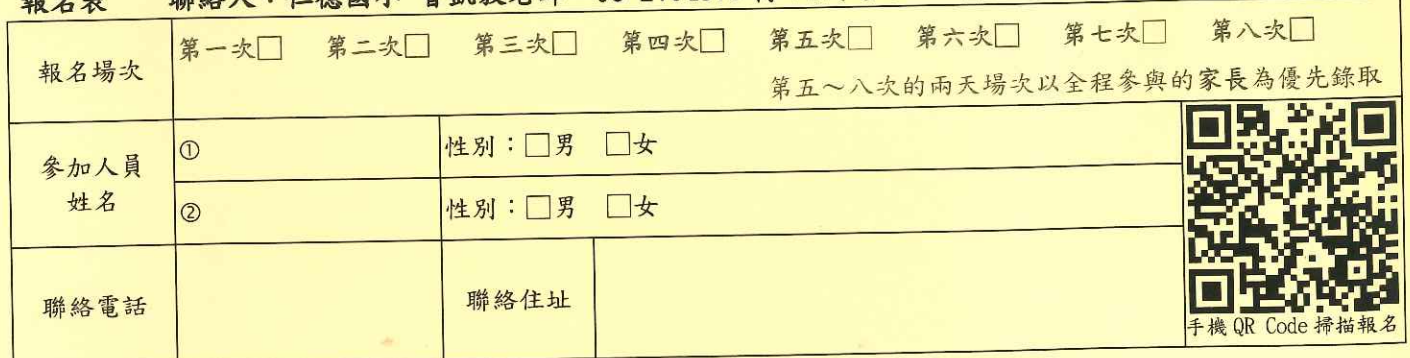 報名表 聯絡人：仁德國小
報名場次
第一次□ 第二次□ 第三次□ 第四次□ 第五次□ 第六次□ 第七次□ 第八次□
第五～八次的兩天場次以全程參與的家長為優先錄取
參加人員
姓名
① 性別：□男 □女
② 性別：□男 □女
聯絡電話
聯絡住址
手機 QR Code 掃描報名